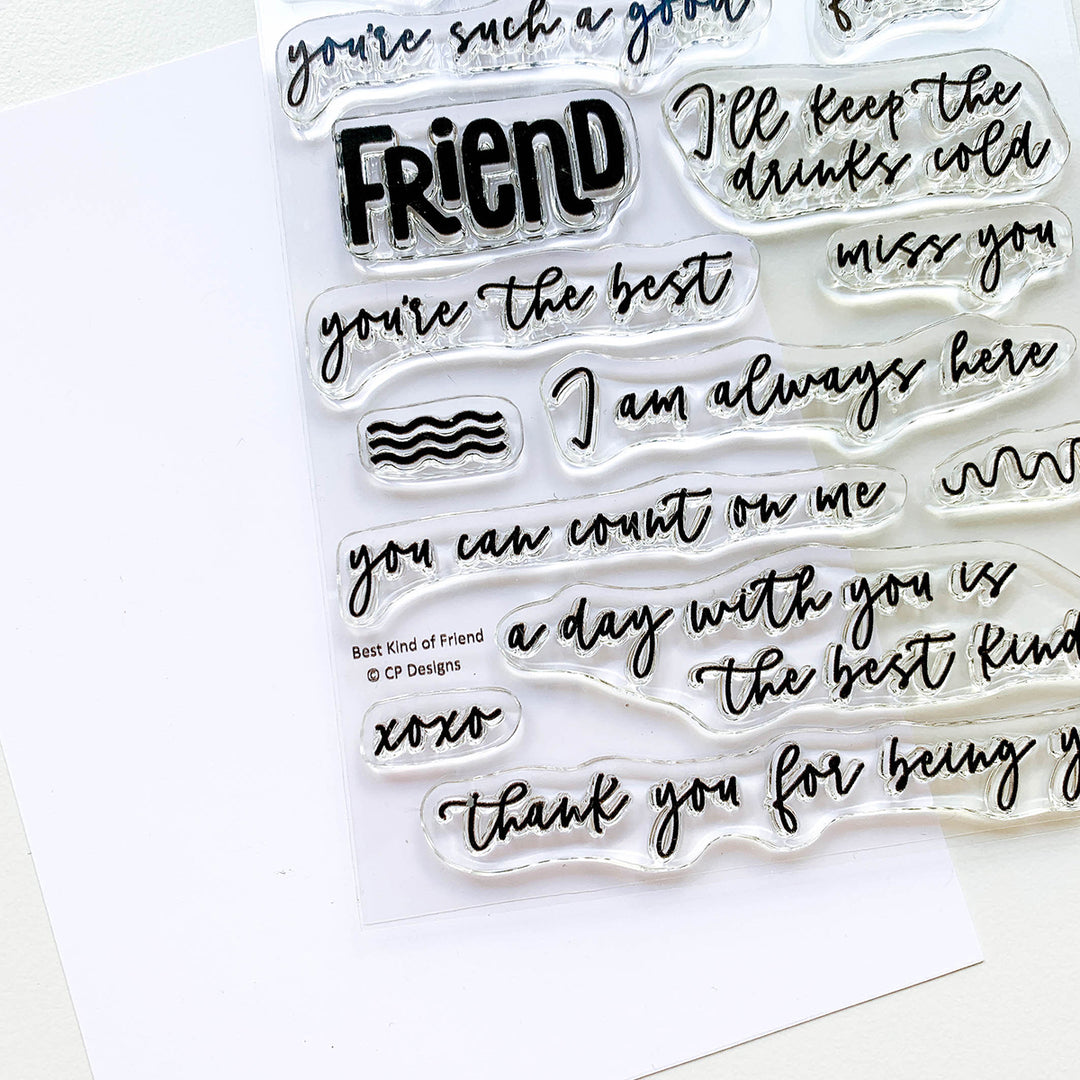 you're such a good
FRiend
I'll keep the
drinks cold
miss you
you're the best
I am always here
you can count on me
a day with you is
the best kind
Best Kind of Friend
© CP Designs
xoxo
thank you for being